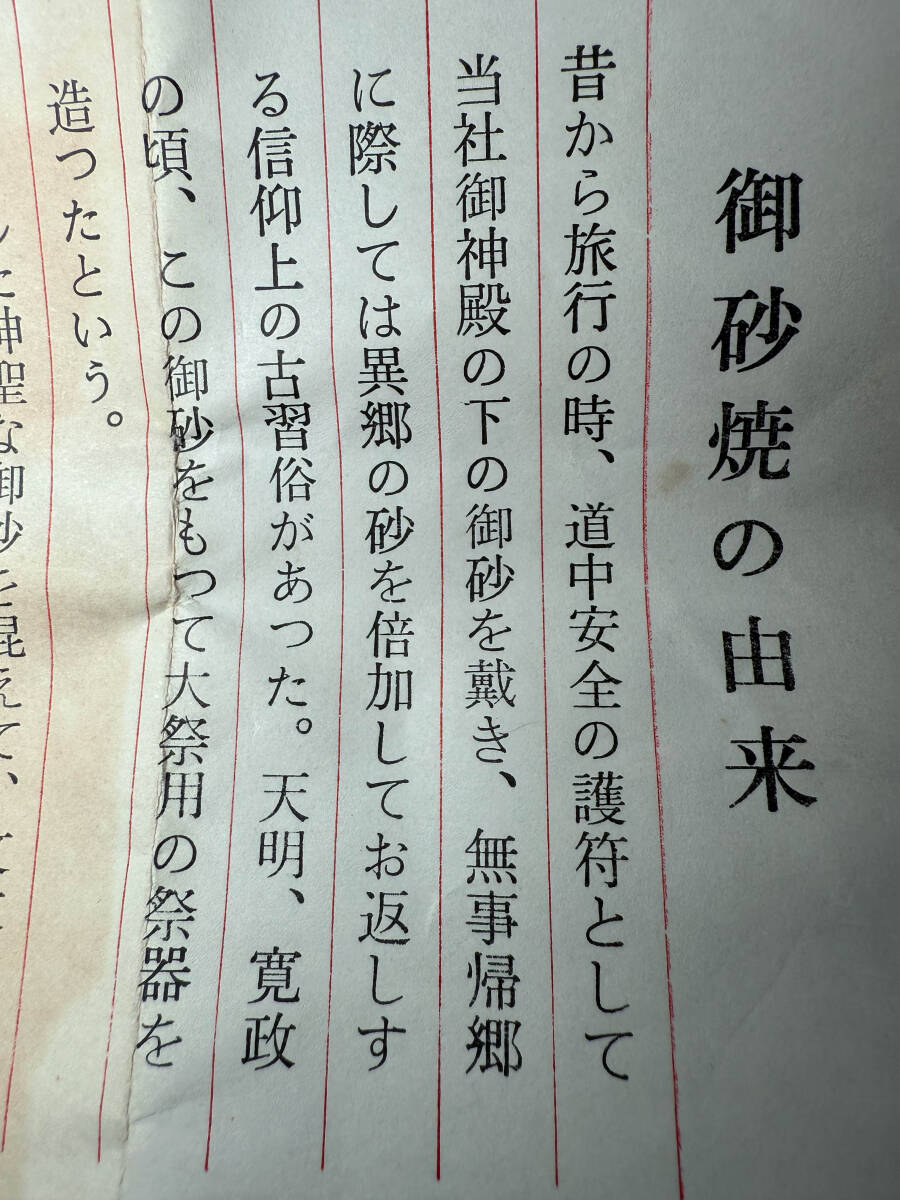 御砂焼の由来
昔から旅行の時、道中安全の護符として
当社御神殿の下の御砂を戴き、無事帰郷
に際しては異郷の砂を倍加してお返しす
る信仰上の古習俗があつた。天明、寛政
の頃、この御砂をもつて大祭用の祭器を
造つたという。
神聖な御砂を混えて、